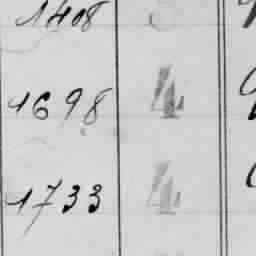 1408
1698 4
1733 4